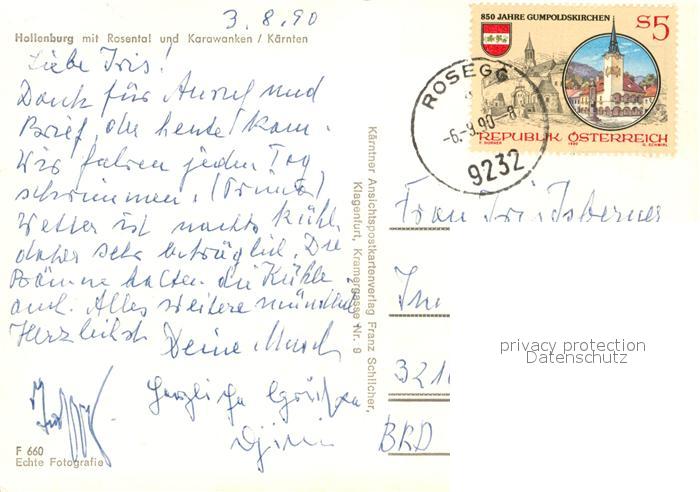 3.8.90
Hollenburg mit Rosental und Karawanken / Kärnten
Liebe Iris!
Dank für Anruf und
Brief, der heute kam.
Wir fahren jeden Tag
schwimmen.
Wetter ist nachts kühl,
daher sehr Die
Bäume halten die Kühle
auch. Alles weitere mündlich
Herzlichst Deine
Herzliche Grüße
F 660
Echte Fotografie
Kärntner Ansichtspostkartenverlag Franz Schilcher,
Klagenfurt, Kramergasse Nr. 9
850 JAHRE GUMPOLDSKIRCHEN
S5
REPUBLIK ÖSTERREICH
1990
ROSEGG
-6.-9.90-8
9232
Frau Iris
BRD
privacy protection
Datenschutz